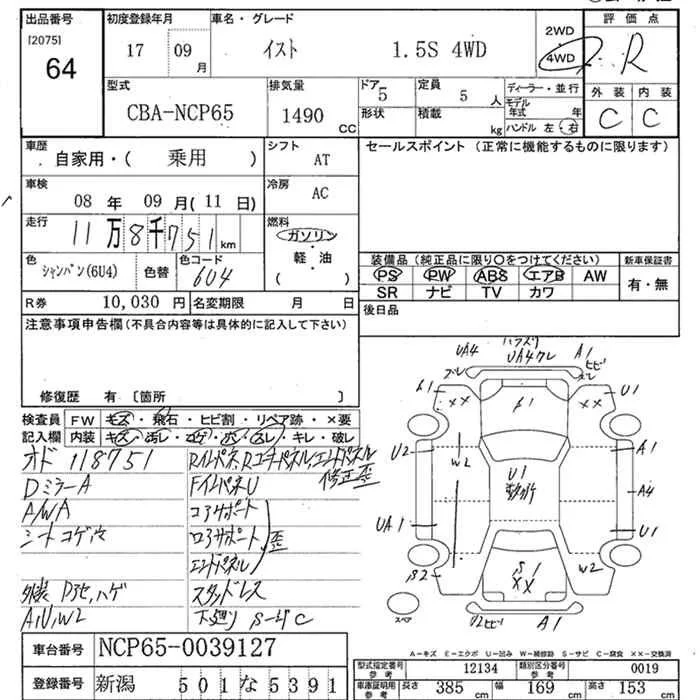 出品番号 初度登録年月 車名・グレード 評価点
[2075] 64
17 09月 イスト 1.5S 4WD 2WD 4WD R
型式 排気量 ドア 定員 ディーラー・並行 外装 内装
CBA-NCP65 1490 CC 5 5人 モデル年式 年 C C
形状 積載 kg ハンドル 左・右
車歴 シフト セールスポイント (正常に機能するものに限ります)
自家用・( 乗用 ) AT
車検 冷房
08 年 09 月( 11 日) AC
走行 燃料
11万8千751km ガソリン・軽油
色 色コード ( )
シャンパン(6U4) 色替 6U4
装備品 (純正品に限り○をつけてください) 新車保証書
PS PW ABS エアB AW 有・無
SR ナビ TV カワ
R券 10,030 円 名変期限 月 日 後日品
注意事項申告欄 (不具合内容等は具体的に記入して下さい)
修復歴 有 [箇所 ]
検査員 FW キズ・飛石・ヒビ割・リペア跡・×要
記入欄 内装 キズ・汚レ・コゲ・穴・スレ・キレ・破レ
オド 118751
DミラーA FインパネU
A/WA コアサポート
シートコゲ穴 ロアサポート 歪
エンドパネル
スタッドレス
A1U1W2 下廻り S-サビC
UA4 UA4ワレ A1
ズレ ヒビ
A1 XX A1 XX U1
U2 W2 U1 A1
A4
UA1 U1
B2 S1 XX W2
スペア U2ヒビ A1
A-キズ E-エクボ U-凹み W-補修跡 S-サビ C-腐食 XX-交換済
車台番号 NCP65-0039127
型式指定番号 参考 12134 類別区分番号 参考 0019
登録番号 新潟 501 な 5391
車庫証明用 参考 長さ 385 cm 幅 169 cm 高さ 153 cm